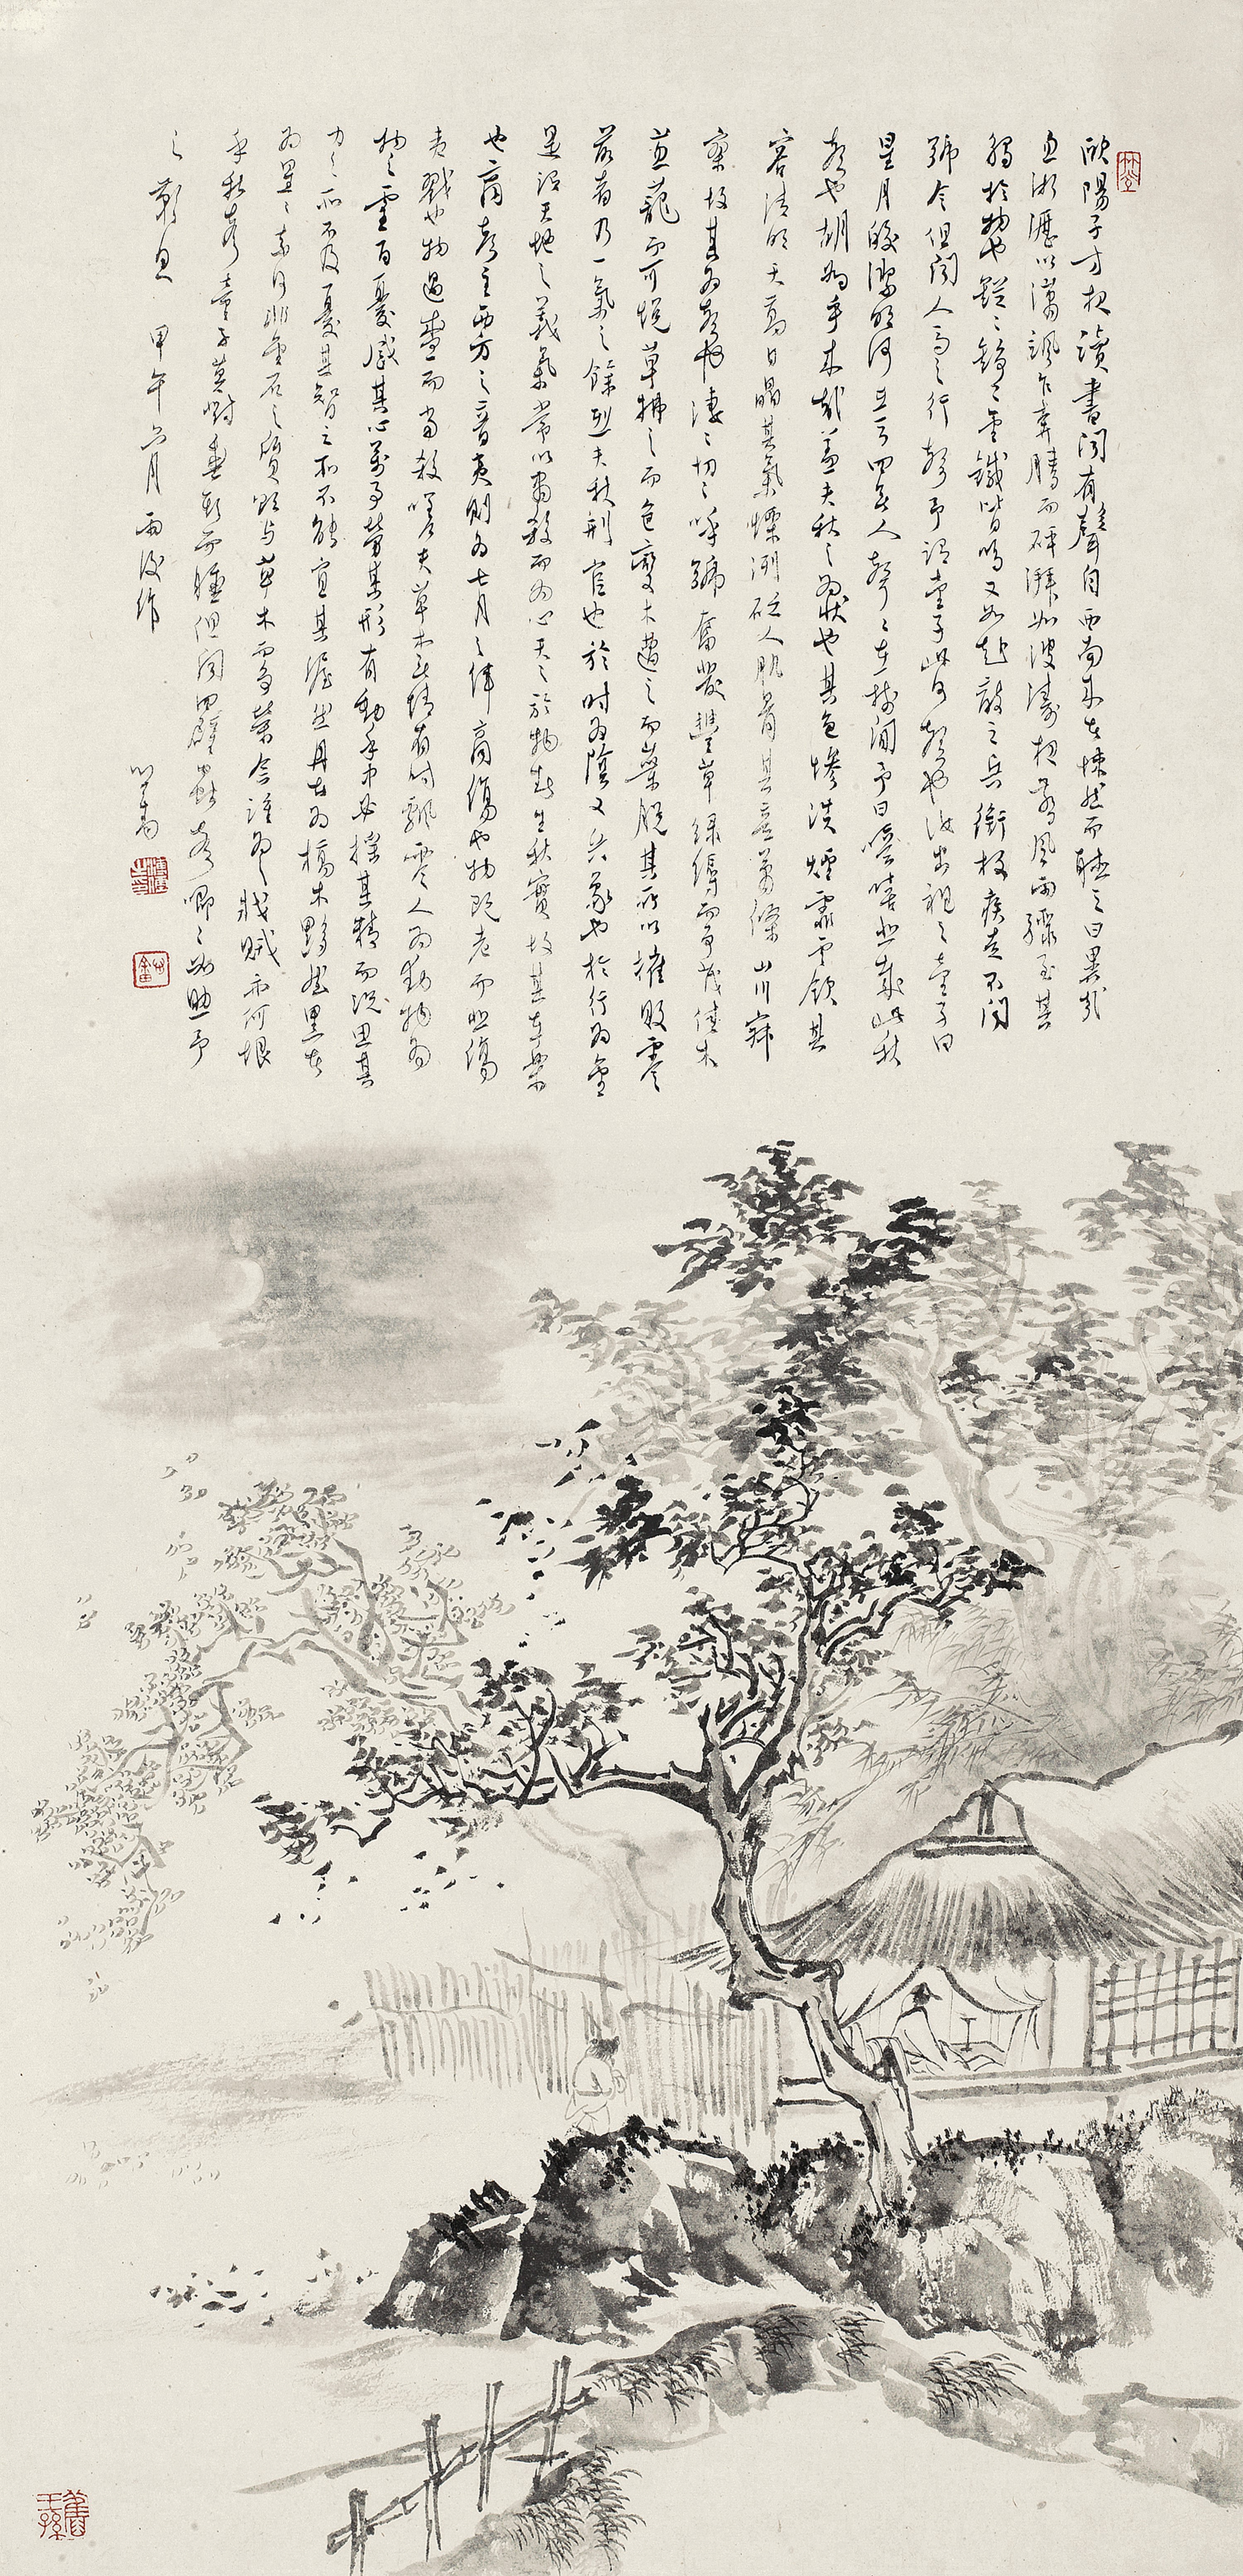 歐陽子方夜讀書聞有聲自西南來者悚然而聽之曰異哉
淅瀝以瀟颯乍奔騰而砰湃如波濤夜驚風雨驟至其
觸於物也鏦〻錚〻金鐵皆鳴又如赴敵之兵銜枚疾走不聞
號令但聞人馬之行聲予謂童子此何聲也汝出視之童子曰
星月皎潔明河在天四無人聲〻在樹間予曰噫嘻悲哉此秋
聲也胡為乎來哉蓋夫秋之為狀也其色慘淡煙霏雲斂其
容清明天高日晶其氣慄冽砭人肌骨其意蕭條山川寂
寥故其為聲也淒〻切〻呼號奮發豐草綠縟而爭茂佳木
蔥蘢而可悅草拂之而色變木遭之而葉脫其所以摧敗零
落者乃一氣之餘烈夫秋刑官也於時為陰又兵象也於行為金
是謂天地之義氣常以肅殺而為心天之於物春生秋實故其在樂
也商聲主西方之音夷則為七月之律商傷也物既老而悲傷
夷戮也物過盛而當殺嗟夫草木無情有時飄零人為動物
物之靈百憂感其心萬事勞其形有動乎中必搖其精而況思其
力之所不及憂其智之所不能宜其渥然丹者為槁木黟然黑者
為星〻奈何非金石之質欲與草木而爭榮念誰為之戕賊亦何恨
乎秋聲童子莫對垂頭而睡但聞四壁蟲聲唧〻如助予
之歎息 甲午六月雨後作
心畬
舊王孫